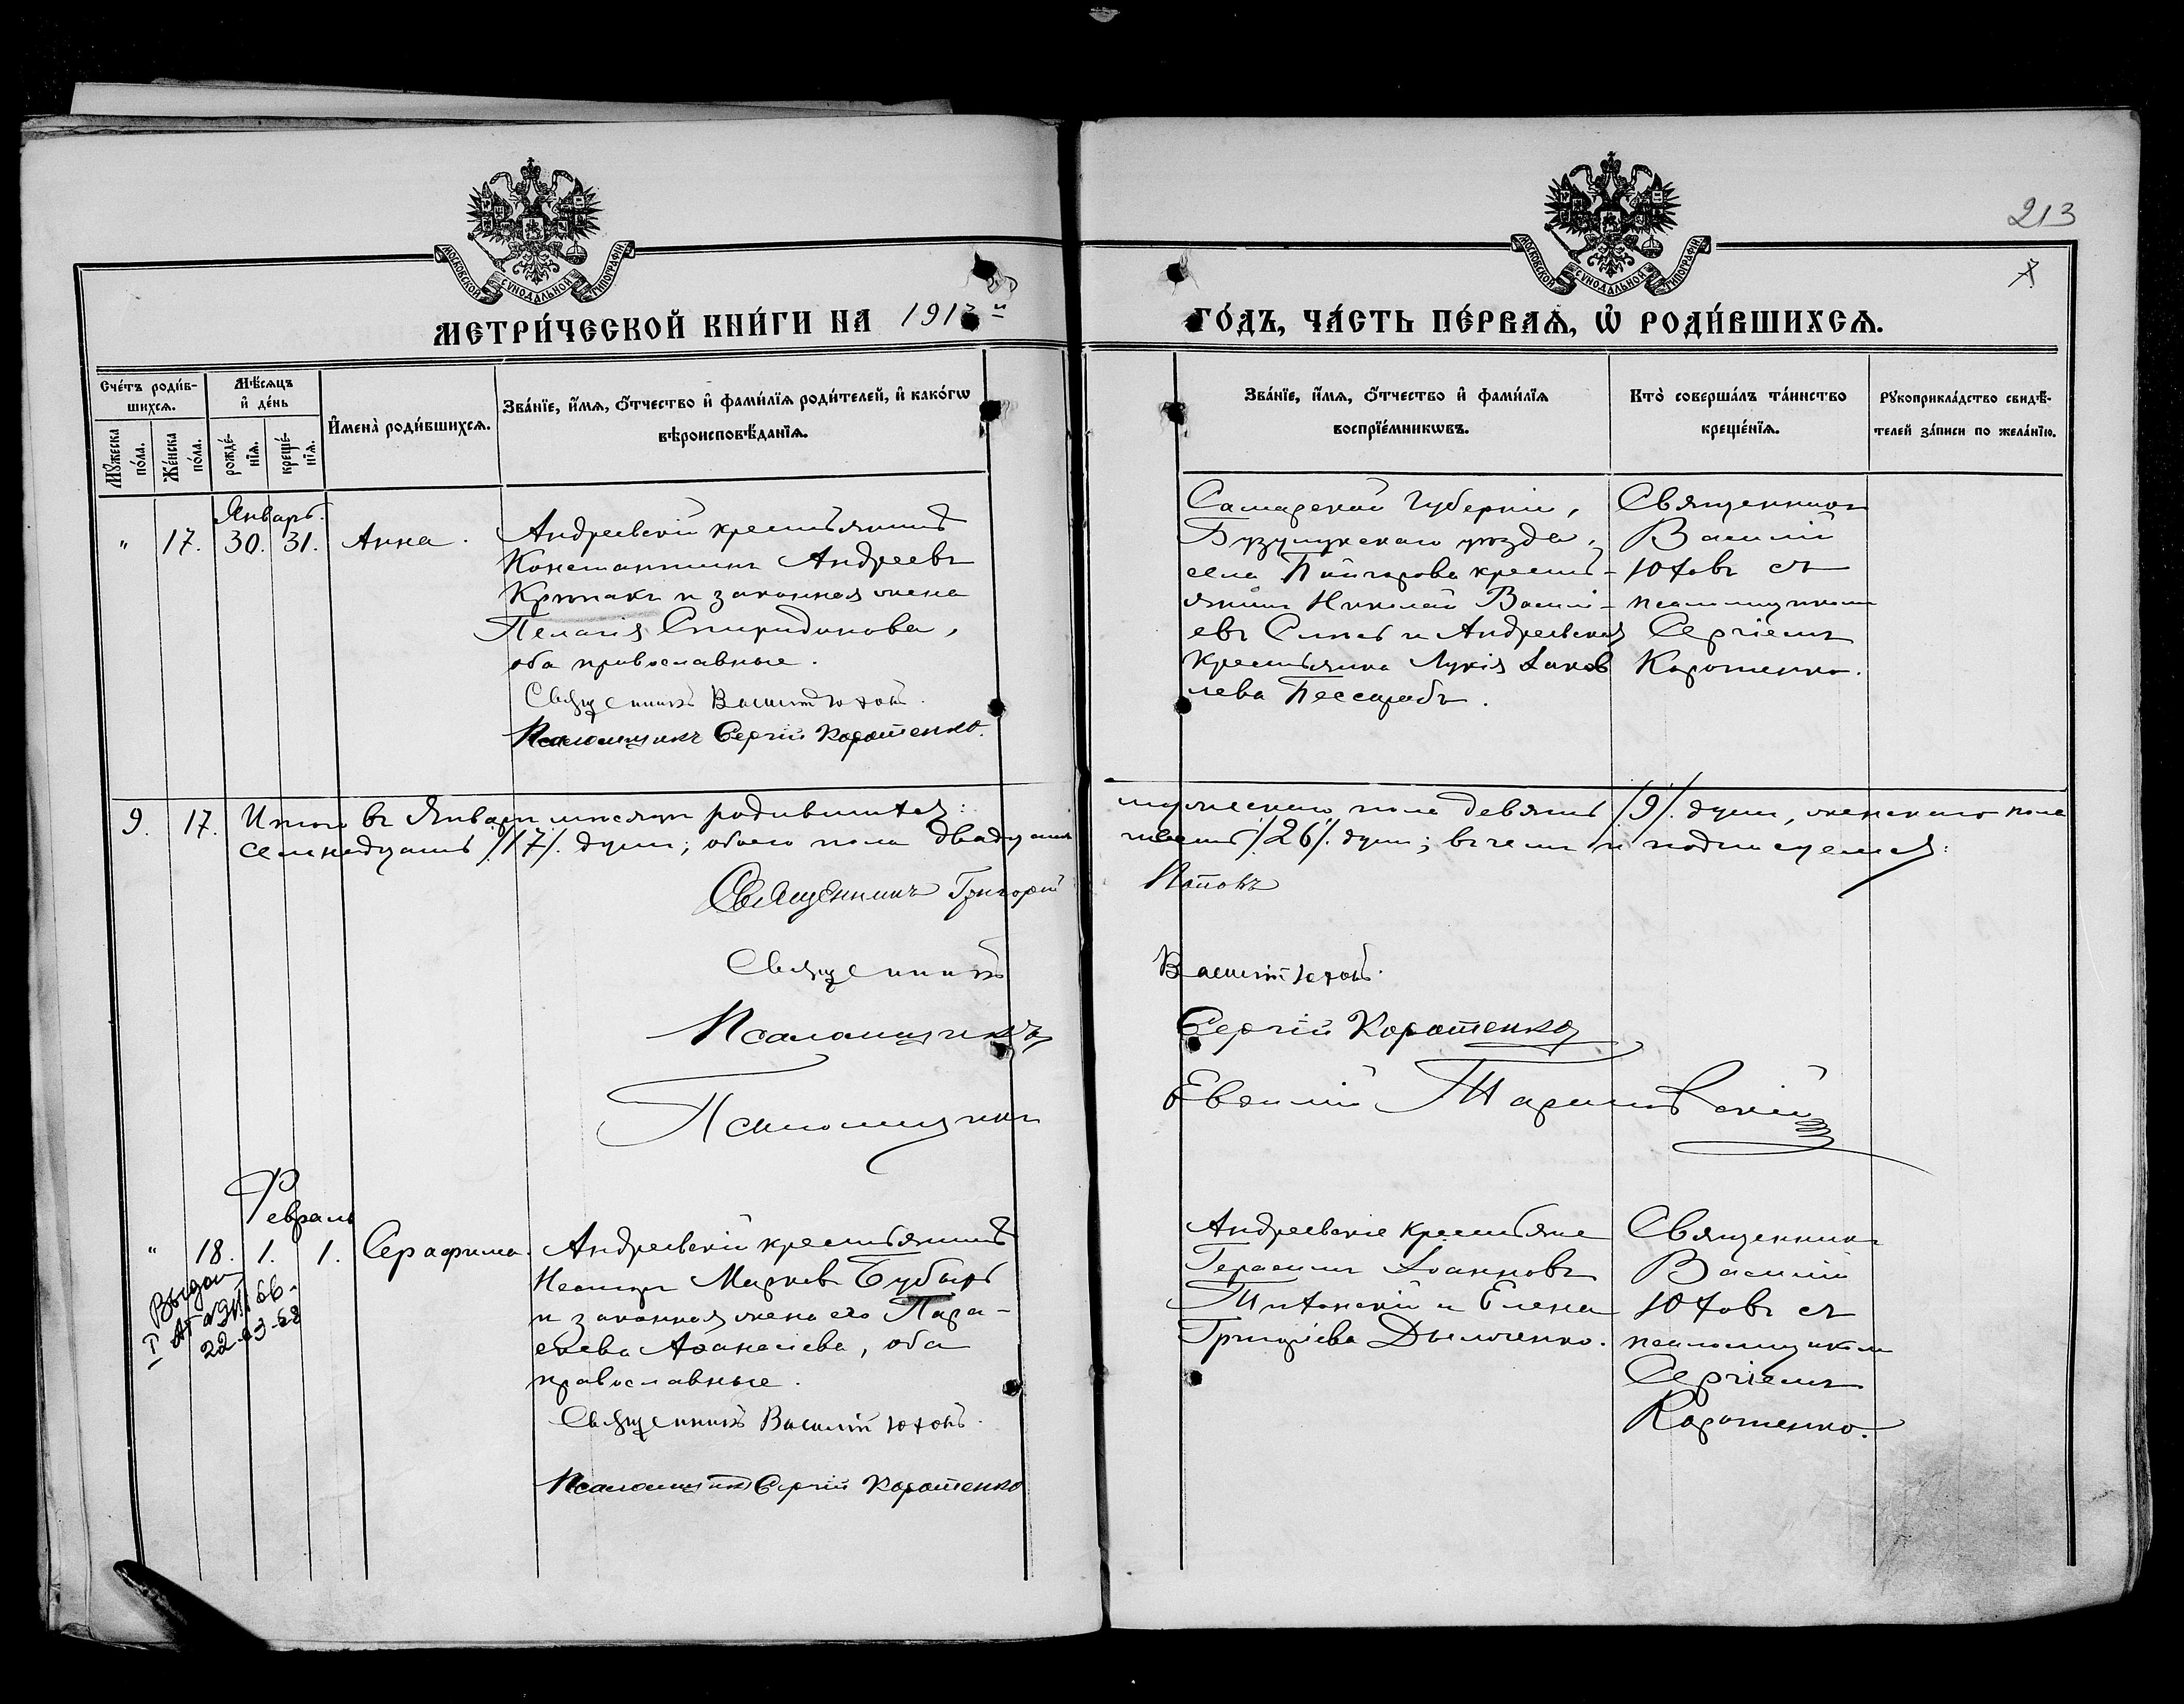 213
7
МОСКОВСКОЙ СѴНОДАЛЬНОЙ ТИПОГРАФІИ
МОСКОВСКОЙ СѴНОДАЛЬНОЙ ТИПОГРАФІИ
МЕТРИ́ЧЕСКОЙ КНИ́ГИ НА 191
ГО́ДЪ, ЧА́СТЬ ПЕ́РВАѦ, Ѡ҆ РОДИ́ВШИХСѦ.
Сче́тъ роди́в-
шихсѧ.
Мꙋ́жеска по́ла.
Же́нска по́ла.
Мѣ́сѧцъ
и҆ де́нь
рожде́-нїѧ.
креще́-нїѧ.
И҆мена̀ роди́вшихсѧ.
Зва́нїе, и҆́мѧ, ѻ҆́тчество и҆ фами́лїѧ роди́телей, и҆ како́гѡ
вѣроисповѣ́данїѧ.
Зва́нїе, и҆́мѧ, ѻ҆́тчество и҆ фами́лїѧ
воспрїе́мникѡвъ.
Кто̀ соверша́лъ та́инство
креще́нїѧ.
Рꙋкоприкла́дство свидѣ́-
телей за́писи по жела́нїю.
Январь.
" 17. 30. 31. Анна.
Андреевскій крестьянинъ
Константинъ Андреевъ
Крюпакъ и законная жена
Пелагія Спиридонова,
оба православные.
Священникъ Василій Юховъ.
Псаломщикъ Сергій Коротенко.
Самарской губерніи,
Бузулукскаго уѣзда,
села крестъ-
янинъ Николай Васи-
евъ и Андреевская
крестьянка Лукія Іаков
лева Бессарабъ.
Священникъ
Василій
Юховъ съ
псаломщикомъ
Сергіемъ
Коротенко.
9. 17. Итого въ Январѣ мѣсяцѣ родившихся: мужескаго пола девять /9/. душъ, женскаго пола
семнадцать /17/. душъ; обоего пола двадцать шесть /26/. душъ; въ чемъ и подписуемся:
Священникъ Григорій Поповъ
Священникъ Василій Юховъ.
Псаломщикъ Сергій Коротенко
Псаломщикъ Евѳимій
Февраль
" 18. 1. 1. Серафима.
Выдан
22-03-68
Андреевскій крестьянинъ
Марковъ Бубырь
и законная жена его Пара-
скева Аѳанасіева, оба
православные.
Священникъ Василій Юховъ.
Псаломщикъ Сергій Коротенко
Андреевскіе крестьяне
Герасимъ Іоанновъ
и Елена
Григоріева
Священникъ
Василій
Юховъ съ
псаломщикомъ
Сергіемъ
Коротенко.